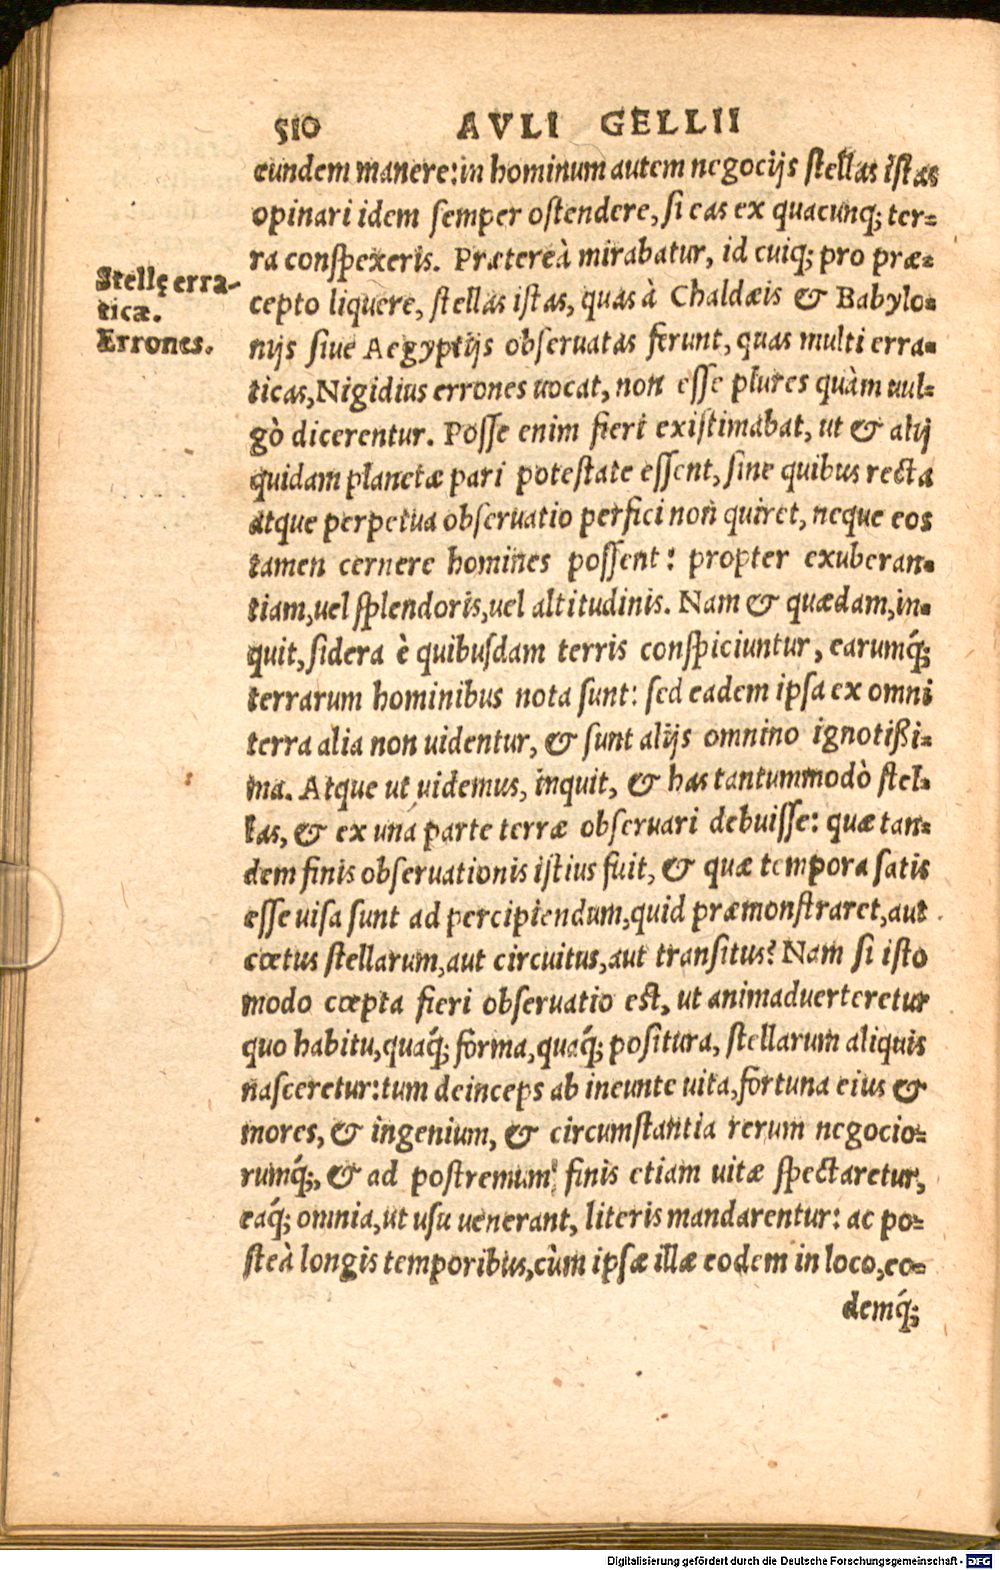 510 AVLI GELLII
eundem manere: in hominum autem negocijs stellas istas
opinari idem semper ostendere, si eas ex quacunq; ter-
ra conspexeris. Prætereà mirabatur, id cuiq; pro præ-
cepto liquere, stellas istas, quas à Chaldæis & Babylo-
nijs siue Aegyptijs obseruatas ferunt, quas multi erra-
ticas, Nigidius errones uocat, non esse plures quàm uul-
gò dicerentur. Posse enim fieri existimabat, ut & alij
quidam planetæ pari potestate essent, sine quibus recta
atque perpetua obseruatio perfici non quiret, neque eos
tamen cernere homines possent: propter exuberan-
tiam, uel splendoris, uel altitudinis. Nam & quædam, in-
quit, sidera è quibusdam terris conspiciuntur, earumq́;
terrarum hominibus nota sunt: sed eadem ipsa ex omni
terra alia non uidentur, & sunt alijs omnino ignotißi-
ma. Atque ut uidemus, inquit, & has tantummodò stel-
las, & ex una parte terræ obseruari debuisse: quæ tan-
dem finis obseruationis istius fuit, & quæ tempora satis
esse uisa sunt ad percipiendum, quid præmonstraret, aut
cœtus stellarum, aut circuitus, aut transitus? Nam si isto
modo cœpta fieri obseruatio est, ut animaduerteretur
quo habitu, quaq́; forma, quaq́; positura, stellarum aliquis
nasceretur: tum deinceps ab ineunte uita, fortuna eius &
mores, & ingenium, & circumstantia rerum negocio-
rumq́;, & ad postremum finis etiam uitæ spectaretur,
eaq́; omnia, ut usu uenerant, literis mandarentur: ac po-
steà longis temporibus, cùm ipsæ illæ eodem in loco, eo-
demq́;
Stellę erra-
ticæ.
Errones.
Digitalisierung gefördert durch die Deutsche Forschungsgemeinschaft - DFG